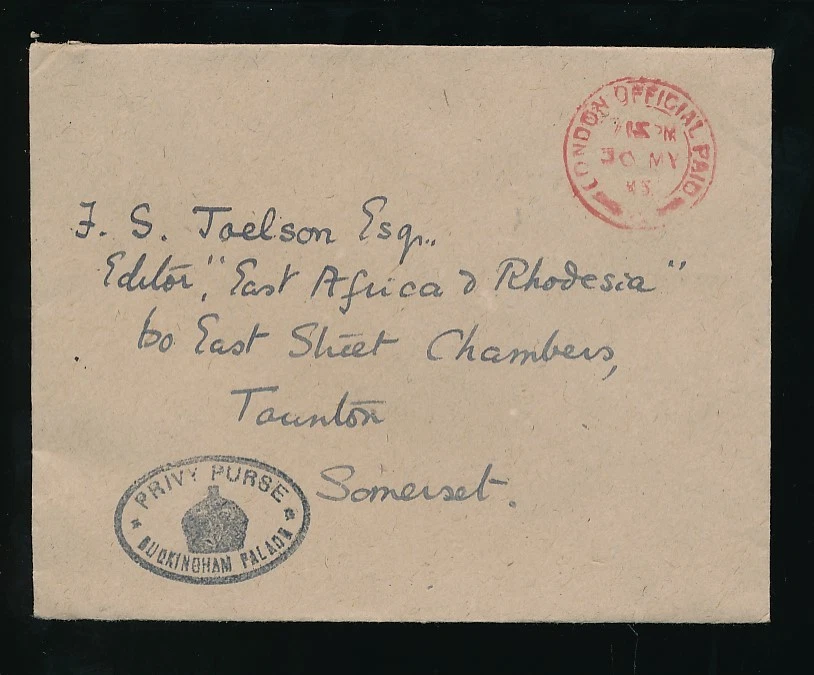 LONDON OFFICIAL PAID
F. S. Joelson Esq.,
Editor, "East Africa & Rhodesia"
60 East Street Chambers,
Taunton
Somerset.
PRIVY PURSE
BUCKINGHAM PALACE